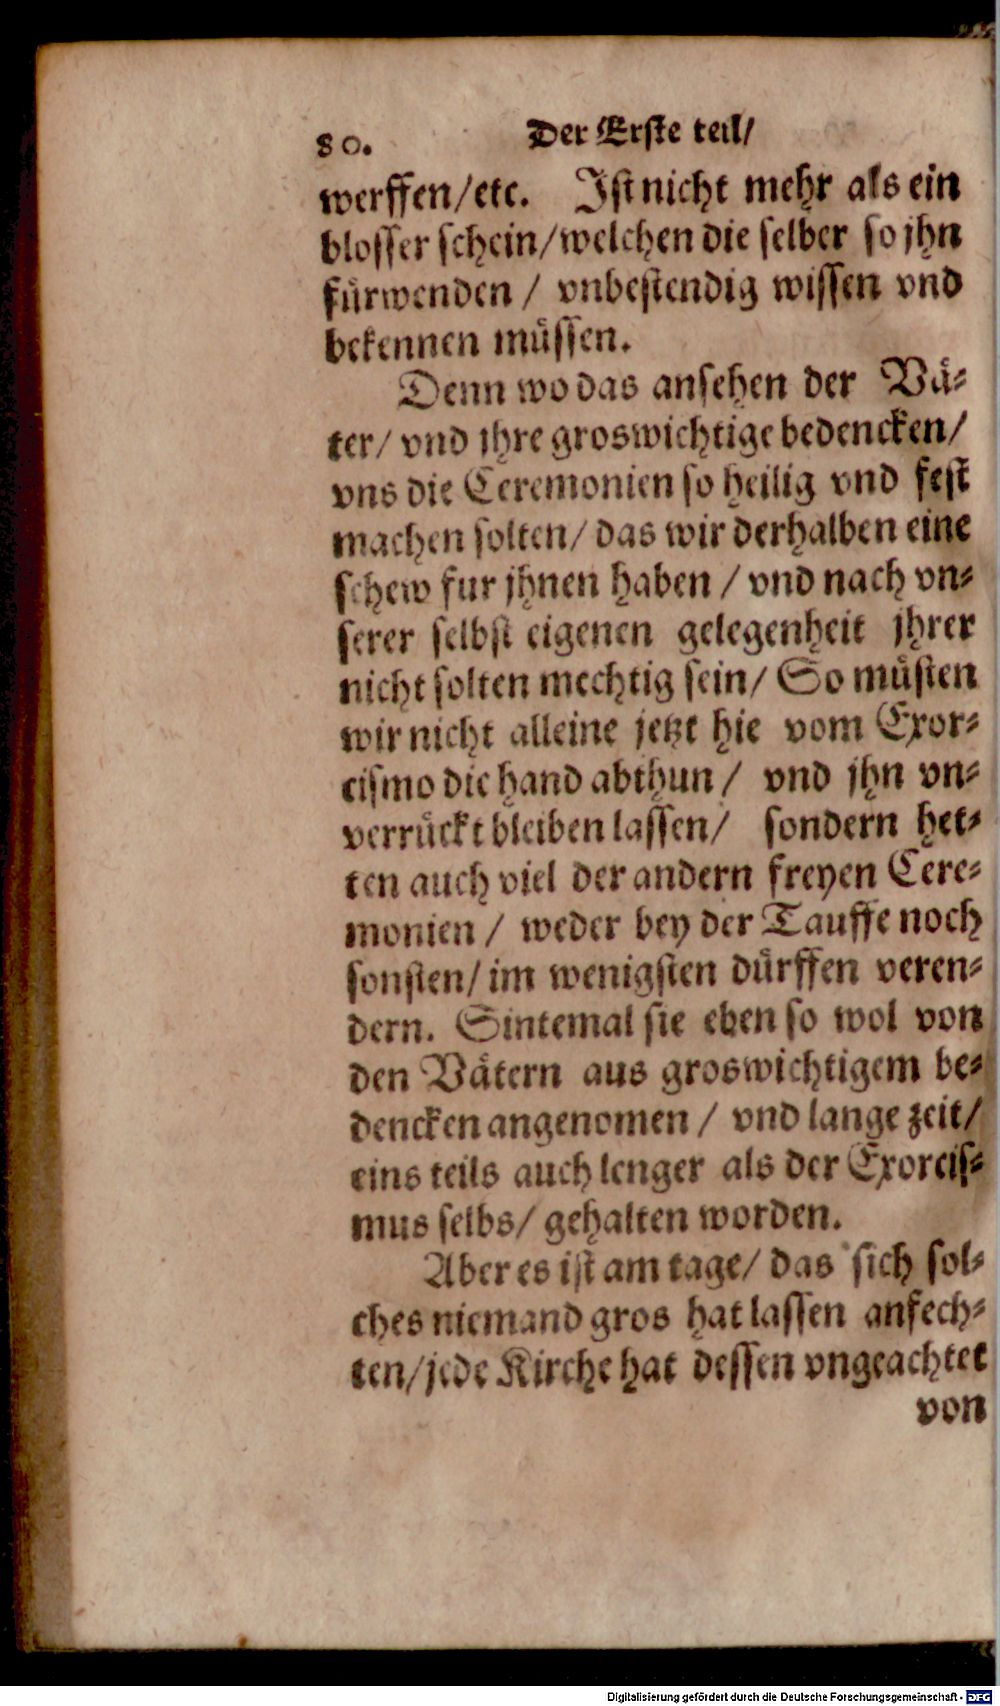 80. Der Erste teil/
werffen/etc. Ist nicht mehr als ein
blosser schein/welchen die selber so jhn
fürwenden / vnbestendig wissen vnd
bekennen müssen.
Denn wo das ansehen der Vä-
ter/ vnd jhre groswichtige bedencken/
vns die Ceremonien so heilig vnd fest
machen solten/ das wir derhalben eine
schew fur jhnen haben / vnd nach vn-
serer selbst eigenen gelegenheit jhrer
nicht solten mechtig sein/ So müsten
wir nicht alleine jetzt hie vom Exor-
cismo die hand abthun / vnd jhn vn-
verrückt bleiben lassen/ sondern het-
ten auch viel der andern freyen Cere-
monien / weder bey der Tauffe noch
sonsten/ im wenigsten dürffen veren-
dern. Sintemal sie eben so wol von
den Vätern aus groswichtigem be-
dencken angenomen / vnd lange zeit/
eins teils auch lenger als der Exorcis-
mus selbs/ gehalten worden.
Aber es ist am tage/ das sich sol-
ches niemand gros hat lassen anfech-
ten/jede Kirche hat dessen vngeachtet
von
Digitalisierung gefördert durch die Deutsche Forschungsgemeinschaft - DFG